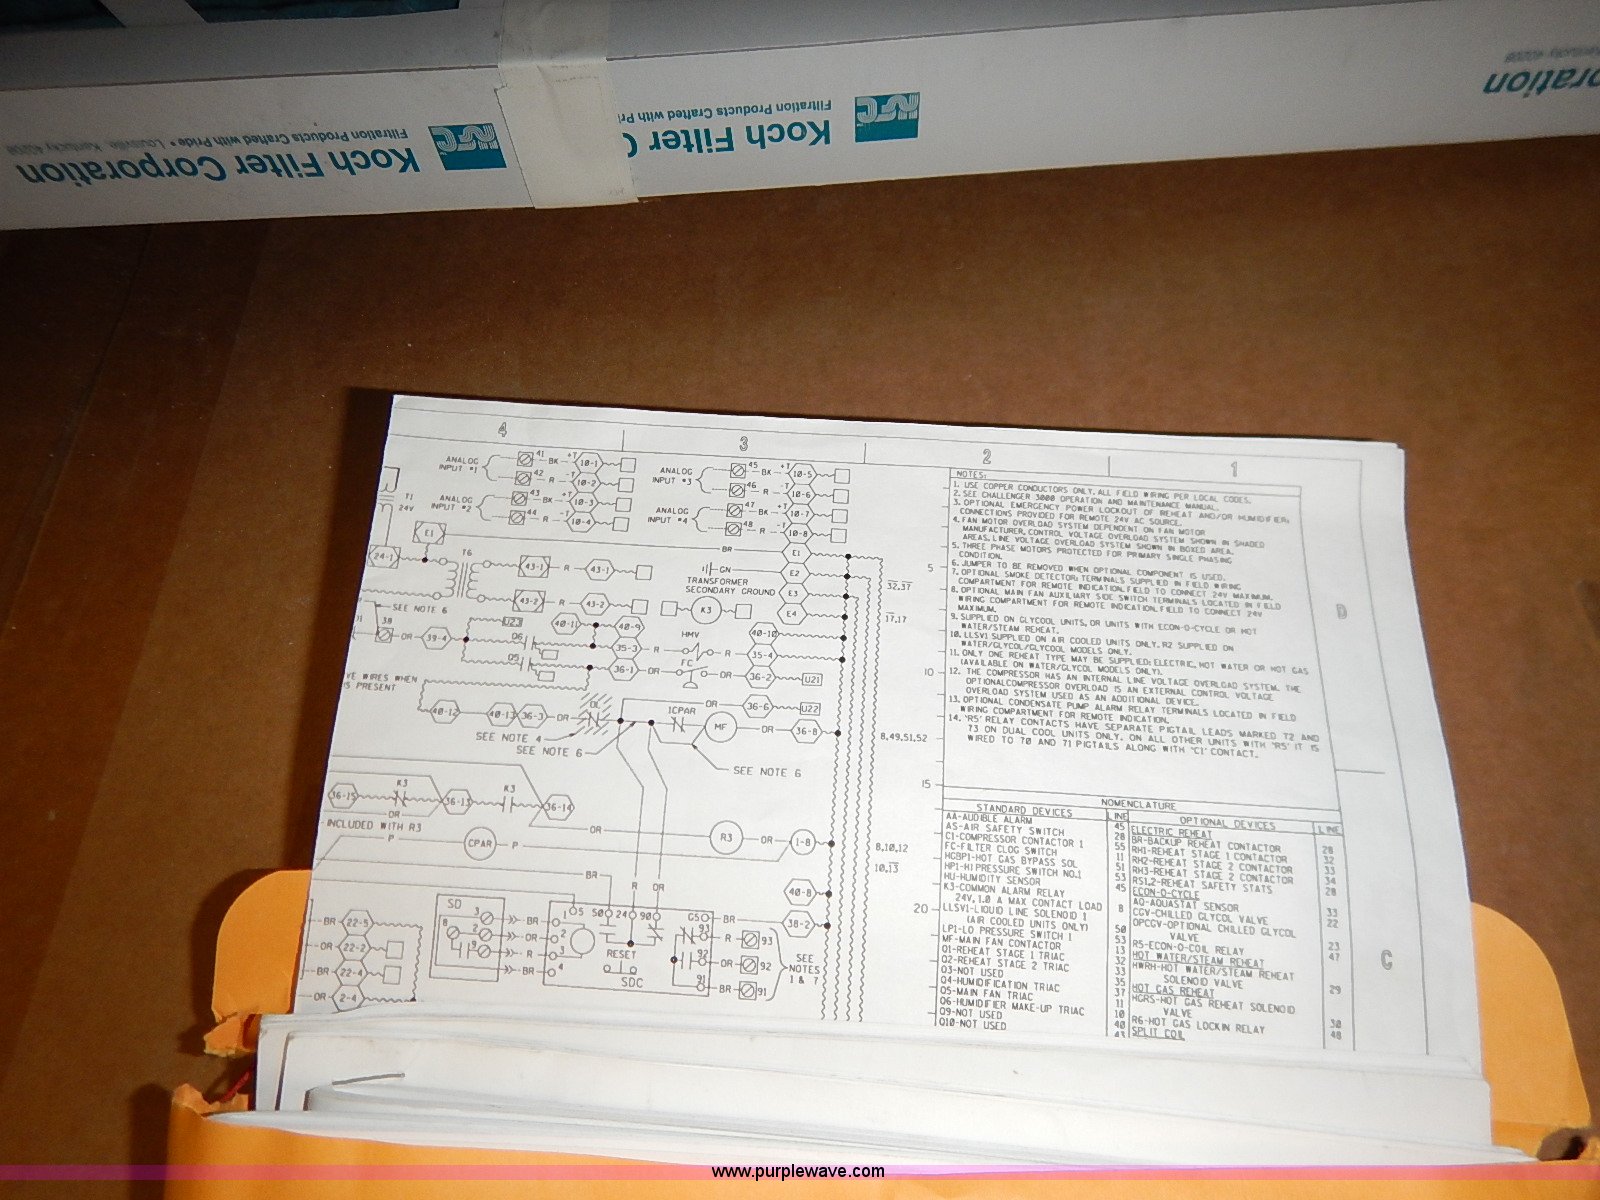 Koch Filter Corporation
Filtration Products Crafted with Pride • Louisville, Kentucky
Koch Filter C
Filtration Products Crafted with Pri
oration
4
3
2
1
ANALOG
INPUT #1
ANALOG
INPUT #2
ANALOG
INPUT #3
ANALOG
INPUT #4
41 BK +T 10-1
42 R -T 10-2
43 BK +T 10-3
44 R -T 10-4
45 BK +T 10-5
46 R -T 10-6
47 BK +T 10-7
48 R -T 10-8
T1
24V
E1
24-1
T6
43-1 R 43-1
43-2 R 43-2
BR E1
GN E2
TRANSFORMER
SECONDARY GROUND
E3
E4
K3
SEE NOTE 6
38
OR 39-4
U23
40-11 40-9
HMV
40-10
35-3 R R 35-4
FC
36-1 OR OR 36-2 U21
VE WIRES WHEN
IS PRESENT
40-12 40-13 36-3 OR
OL
ICPAR
OR 36-6 U22
MF OR 36-8
SEE NOTE 4
SEE NOTE 6
SEE NOTE 6
32,37
17,17
8,49,51,52
8,10,12
10,13
36-15 K3 36-13 K3 36-14
OR
OR
INCLUDED WITH R3
P CPAR P
R3 OR 1-8
BR
R OR
40-8
38-2
22-5
22-2
22-4
2-4
SD
SDC
RESET
SEE
NOTES
1 & 7
93
92
91
5
10
15
20
NOTES:
1. USE COPPER CONDUCTORS ONLY. ALL FIELD WIRING PER LOCAL CODES.
2. SEE CHALLENGER 3000 OPERATION AND MAINTENANCE MANUAL.
3. OPTIONAL EMERGENCY POWER LOCKOUT OF REHEAT AND/OR HUMIDIFIER:
CONNECTIONS PROVIDED FOR REMOTE 24V AC SOURCE.
4. FAN MOTOR OVERLOAD SYSTEM DEPENDENT ON FAN MOTOR
MANUFACTURER. CONTROL VOLTAGE OVERLOAD SYSTEM SHOWN IN SHADED
AREAS. LINE VOLTAGE OVERLOAD SYSTEM SHOWN IN BOXED AREA.
5. THREE PHASE MOTORS PROTECTED FOR PRIMARY SINGLE PHASING
CONDITION.
6. JUMPER TO BE REMOVED WHEN OPTIONAL COMPONENT IS USED.
7. OPTIONAL SMOKE DETECTOR: TERMINALS SUPPLIED IN FIELD WIRING
COMPARTMENT FOR REMOTE INDICATION. FIELD TO CONNECT 24V MAXIMUM.
8. OPTIONAL MAIN FAN AUXILIARY SIDE SWITCH TERMINALS LOCATED IN FIELD
WIRING COMPARTMENT FOR REMOTE INDICATION. FIELD TO CONNECT 24V
MAXIMUM.
9. SUPPLIED ON GLYCOL UNITS, OR UNITS WITH ECON-O-CYCLE OR HOT
WATER/STEAM REHEAT.
10. LLSV1 SUPPLIED ON AIR COOLED UNITS ONLY. R2 SUPPLIED ON
WATER/GLYCOL/GLYCOOL MODELS ONLY.
11. ONLY ONE REHEAT TYPE MAY BE SUPPLIED: ELECTRIC, HOT WATER OR HOT GAS
(AVAILABLE ON WATER/GLYCOL MODELS ONLY).
12. THE COMPRESSOR HAS AN INTERNAL LINE VOLTAGE OVERLOAD SYSTEM. THE
OPTIONAL COMPRESSOR OVERLOAD IS AN EXTERNAL CONTROL VOLTAGE
OVERLOAD SYSTEM USED AS AN ADDITIONAL DEVICE.
13. OPTIONAL CONDENSATE PUMP ALARM RELAY TERMINALS LOCATED IN FIELD
WIRING COMPARTMENT FOR REMOTE INDICATION.
14. 'R5' RELAY CONTACTS HAVE SEPARATE PIGTAIL LEADS MARKED 72 AND
73 ON DUAL COOL UNITS ONLY. ON ALL OTHER UNITS WITH 'R5' IT IS
WIRED TO 70 AND 71 PIGTAILS ALONG WITH 'C1' CONTACT.
D
C
NOMENCLATURE
STANDARD DEVICES LINE
AA-AUDIBLE ALARM 45
AS-AIR SAFETY SWITCH 28
C1-COMPRESSOR CONTACTOR 1 55
FC-FILTER CLOG SWITCH 11
HGBP1-HOT GAS BYPASS SOL 51
HP1-HI PRESSURE SWITCH NO.1 53
HU-HUMIDITY SENSOR 45
K3-COMMON ALARM RELAY
24V, 1.0 A MAX CONTACT LOAD 8
LLSV1-LIQUID LINE SOLENOID 1
(AIR COOLED UNITS ONLY) 50
LP1-LO PRESSURE SWITCH 1 53
MF-MAIN FAN CONTACTOR 13
Q1-REHEAT STAGE 1 TRIAC 32
Q2-REHEAT STAGE 2 TRIAC 33
Q3-NOT USED 35
Q4-HUMIDIFICATION TRIAC 37
Q5-MAIN FAN TRIAC 11
Q6-HUMIDIFIER MAKE-UP TRIAC 10
Q9-NOT USED 40
Q10-NOT USED 43
OPTIONAL DEVICES LINE
ELECTRIC REHEAT
BR-BACKUP REHEAT CONTACTOR 28
RH1-REHEAT STAGE 1 CONTACTOR 32
RH2-REHEAT STAGE 2 CONTACTOR 33
RH3-REHEAT STAGE 2 CONTACTOR 34
RS1,2-REHEAT SAFETY STATS 28
ECON-O-CYCLE
AQ-AQUASTAT SENSOR 33
CGV-CHILLED GLYCOL VALVE 22
OPCGV-OPTIONAL CHILLED GLYCOL
VALVE 23
R5-ECON-O-COIL RELAY 47
HOT WATER/STEAM REHEAT
HWRH-HOT WATER/STEAM REHEAT
SOLENOID VALVE 29
HOT GAS REHEAT
HGRS-HOT GAS REHEAT SOLENOID
VALVE 30
R6-HOT GAS LOCKIN RELAY 48
SPLIT COIL
www.purplewave.com